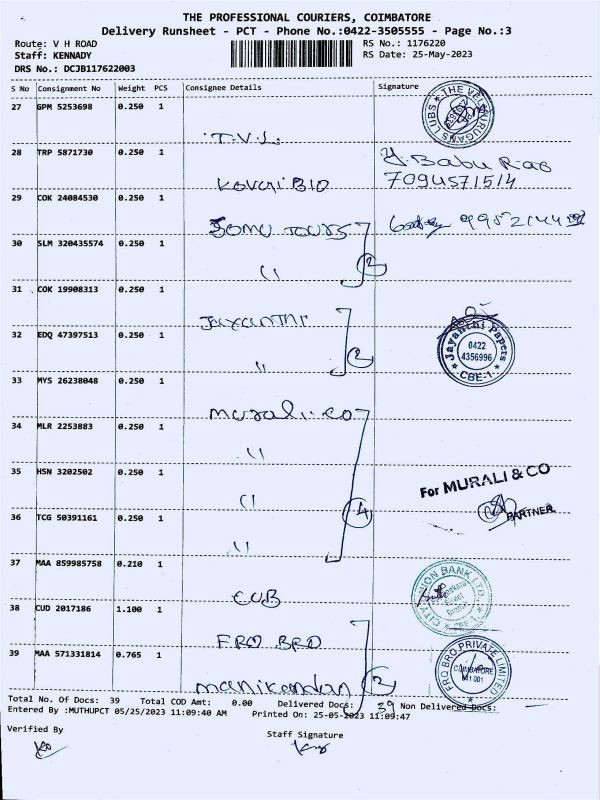 THE PROFESSIONAL COURIERS, COIMBATORE
Delivery Runsheet - PCT - Phone No.:0422-3505555 - Page No.:3
Route: V H ROAD
RS No.: 1176220
Staff: KENNADY
RS Date: 25-May-2023
DRS No.: DCJB117622003
S No Consignment No Weight PCS Consignee Details Signature
27 GPM 5253698 0.250 1
T.V.L.
28 TRP 5871730 0.250 1
Y. Babu Rao
7094571514
Kovai BIO
29 COK 24084530 0.250 1
Somu TOURS
30 SLM 320435574 0.250 1
" 2
31 COK 19908313 0.250 1
Jayanthi
32 EDQ 47397513 0.250 1
Jayanthi Papers
0422
4356996
CBE-1
" 2
33 MYS 26238048 0.250 1
murali.co
34 MLR 2253883 0.250 1
"
35 HSN 3202502 0.250 1
For MURALI & CO
PARTNER
"
36 TCG 50391161 0.250 1
4
"
37 MAA 859985758 0.210 1
CITY UNION BANK LTD.
CUB
38 CUD 2017186 1.100 1
FRO BRO
39 MAA 571331814 0.765 1
FRO BRO PRIVATE LIMITED
COIMBATORE
641 001
manikandan 2
Total No. Of Docs: 39 Total COD Amt: 0.00 Delivered Docs: 39 Non Delivered Docs:
Entered By :MUTHUPCT 05/25/2023 11:09:40 AM Printed On: 25-05-2023 11:09:47
Verified By
Staff Signature